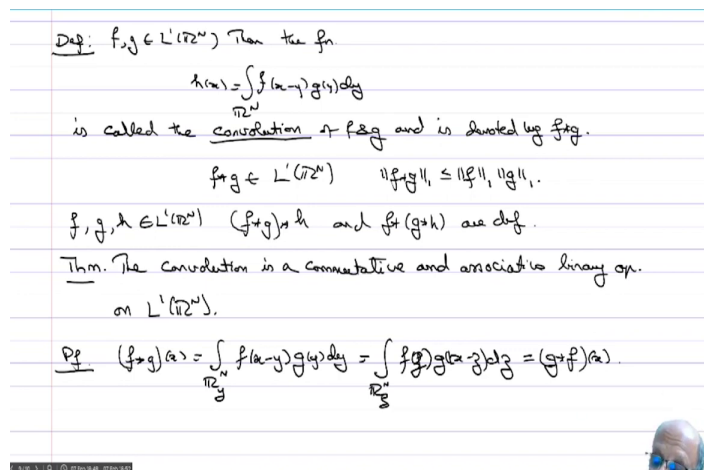 Def: f, g ∈ L¹(ℝᴺ) Then the fn.
h(x) = ∫_{ℝᴺ} f(x-y) g(y) dy
is called the convolution of f & g and is denoted by f*g.
f*g ∈ L¹(ℝᴺ) ‖f*g‖₁ ≤ ‖f‖₁ ‖g‖₁.
f, g, h ∈ L¹(ℝᴺ) (f*g)*h and f*(g*h) are def.
Thm. The convolution is a commutative and associative binary op.
on L¹(ℝᴺ).
Pf. (f*g)(x) = ∫_{ℝᴺ_y} f(x-y) g(y) dy = ∫_{ℝᴺ_ξ} f(ξ) g(x-ξ) dξ = (g*f)(x).